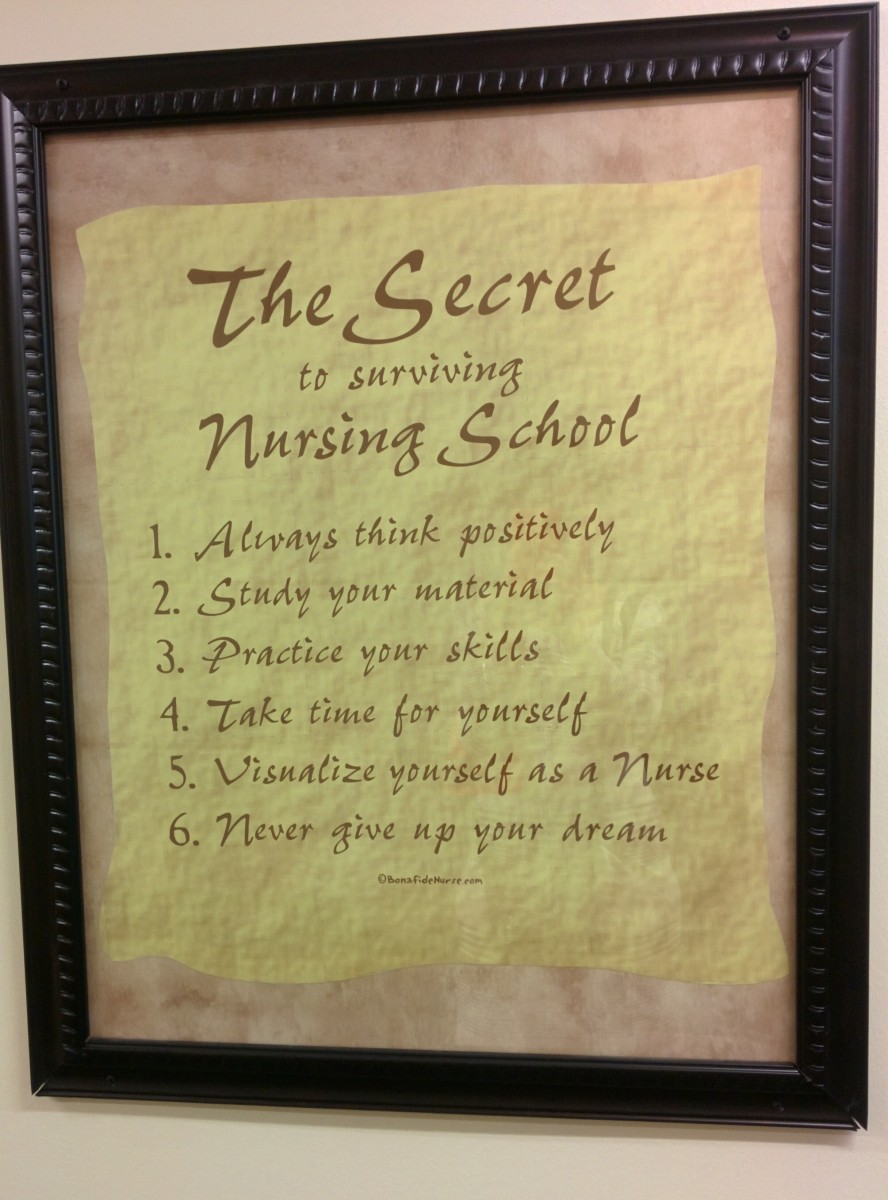 The Secret
to surviving
Nursing School
1. Always think positively
2. Study your material
3. Practice your skills
4. Take time for yourself
5. Visualize yourself as a Nurse
6. Never give up your dream
©BonafideNurse.com